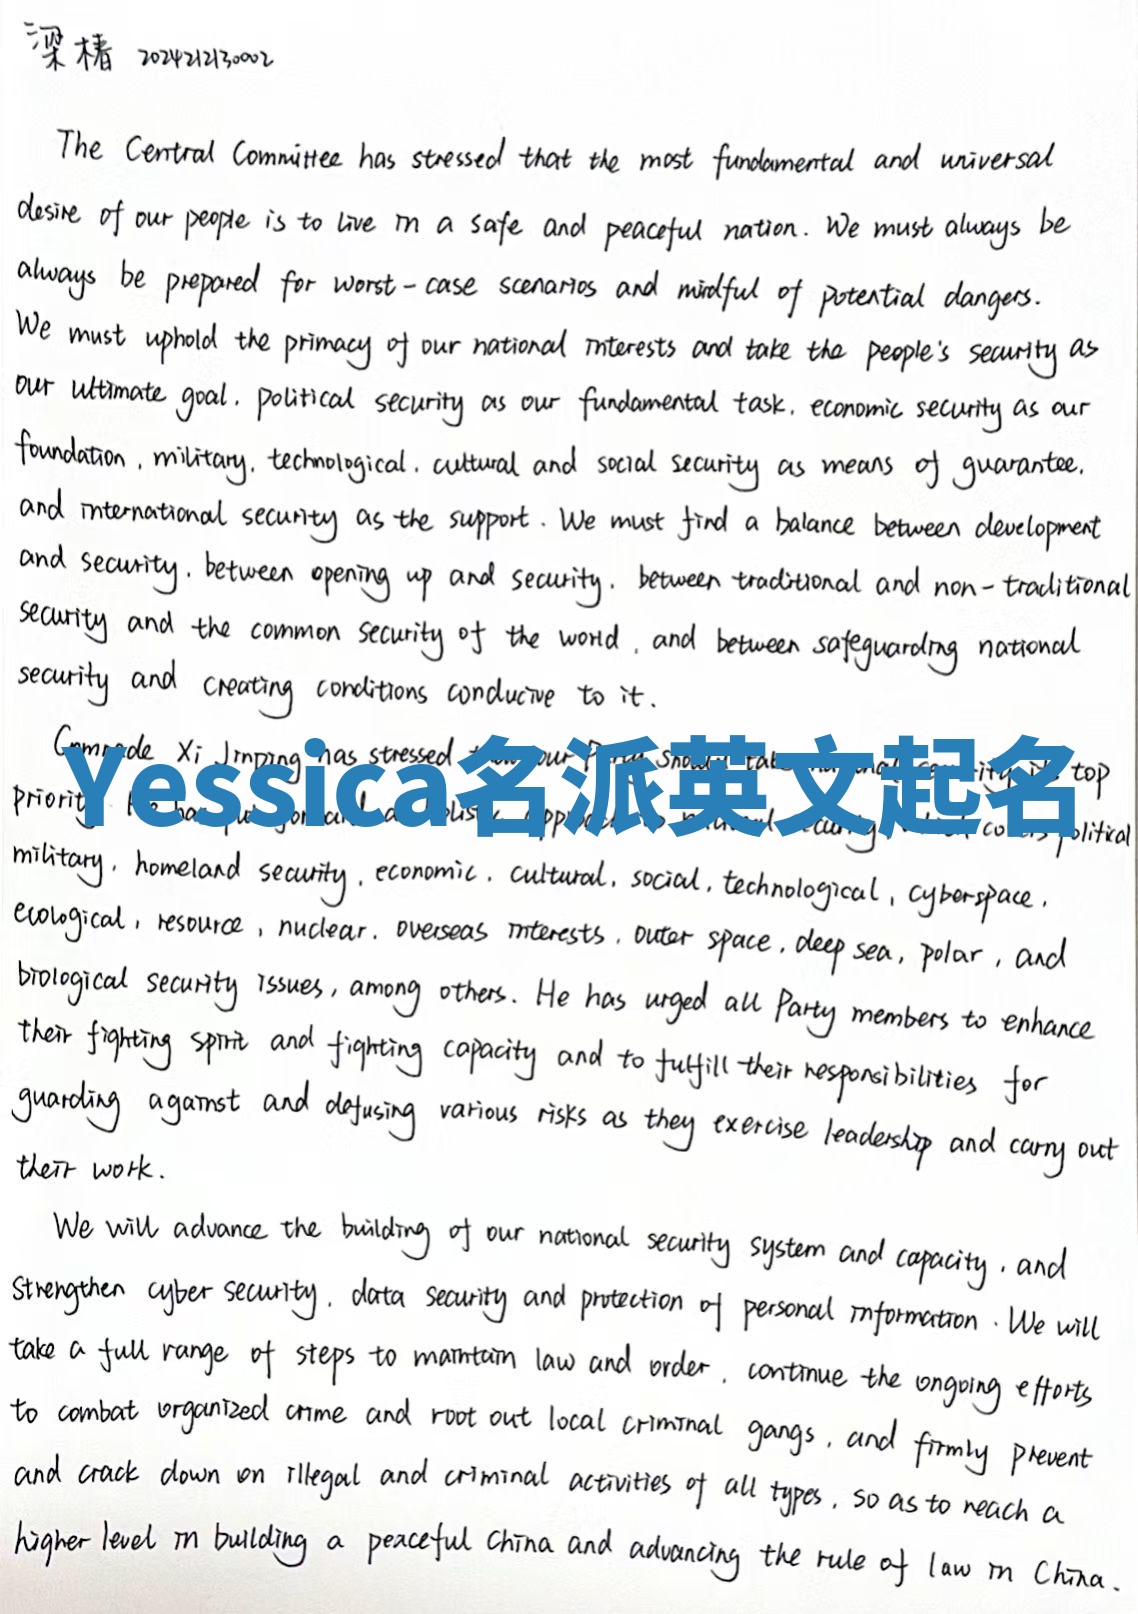 梁椿 2024212130002
The Central Committee has stressed that the most fundamental and universal
desire of our people is to live in a safe and peaceful nation. We must always be
always be prepared for worst-case scenarios and mindful of potential dangers.
We must uphold the primacy of our national interests and take the people's security as
our ultimate goal, political security as our fundamental task, economic security as our
foundation, military, technological, cultural and social security as means of guarantee,
and international security as the support. We must find a balance between development
and security, between opening up and security, between traditional and non-traditional
security and the common security of the world, and between safeguarding national
security and creating conditions conducive to it.
Comrade Xi Jinping has stressed our top
Yessica名派英文起名
priority. political
military, homeland security, economic, cultural, social, technological, cyberspace,
ecological, resource, nuclear, overseas interests, outer space, deep sea, polar, and
biological security issues, among others. He has urged all Party members to enhance
their fighting spirit and fighting capacity and to fulfill their responsibilities for
guarding against and defusing various risks as they exercise leadership and carry out
their work.
We will advance the building of our national security system and capacity, and
strengthen cyber security, data security and protection of personal information. We will
take a full range of steps to maintain law and order, continue the ongoing efforts
to combat organized crime and root out local criminal gangs, and firmly prevent
and crack down on illegal and criminal activities of all types, so as to reach a
higher level in building a peaceful China and advancing the rule of law in China.